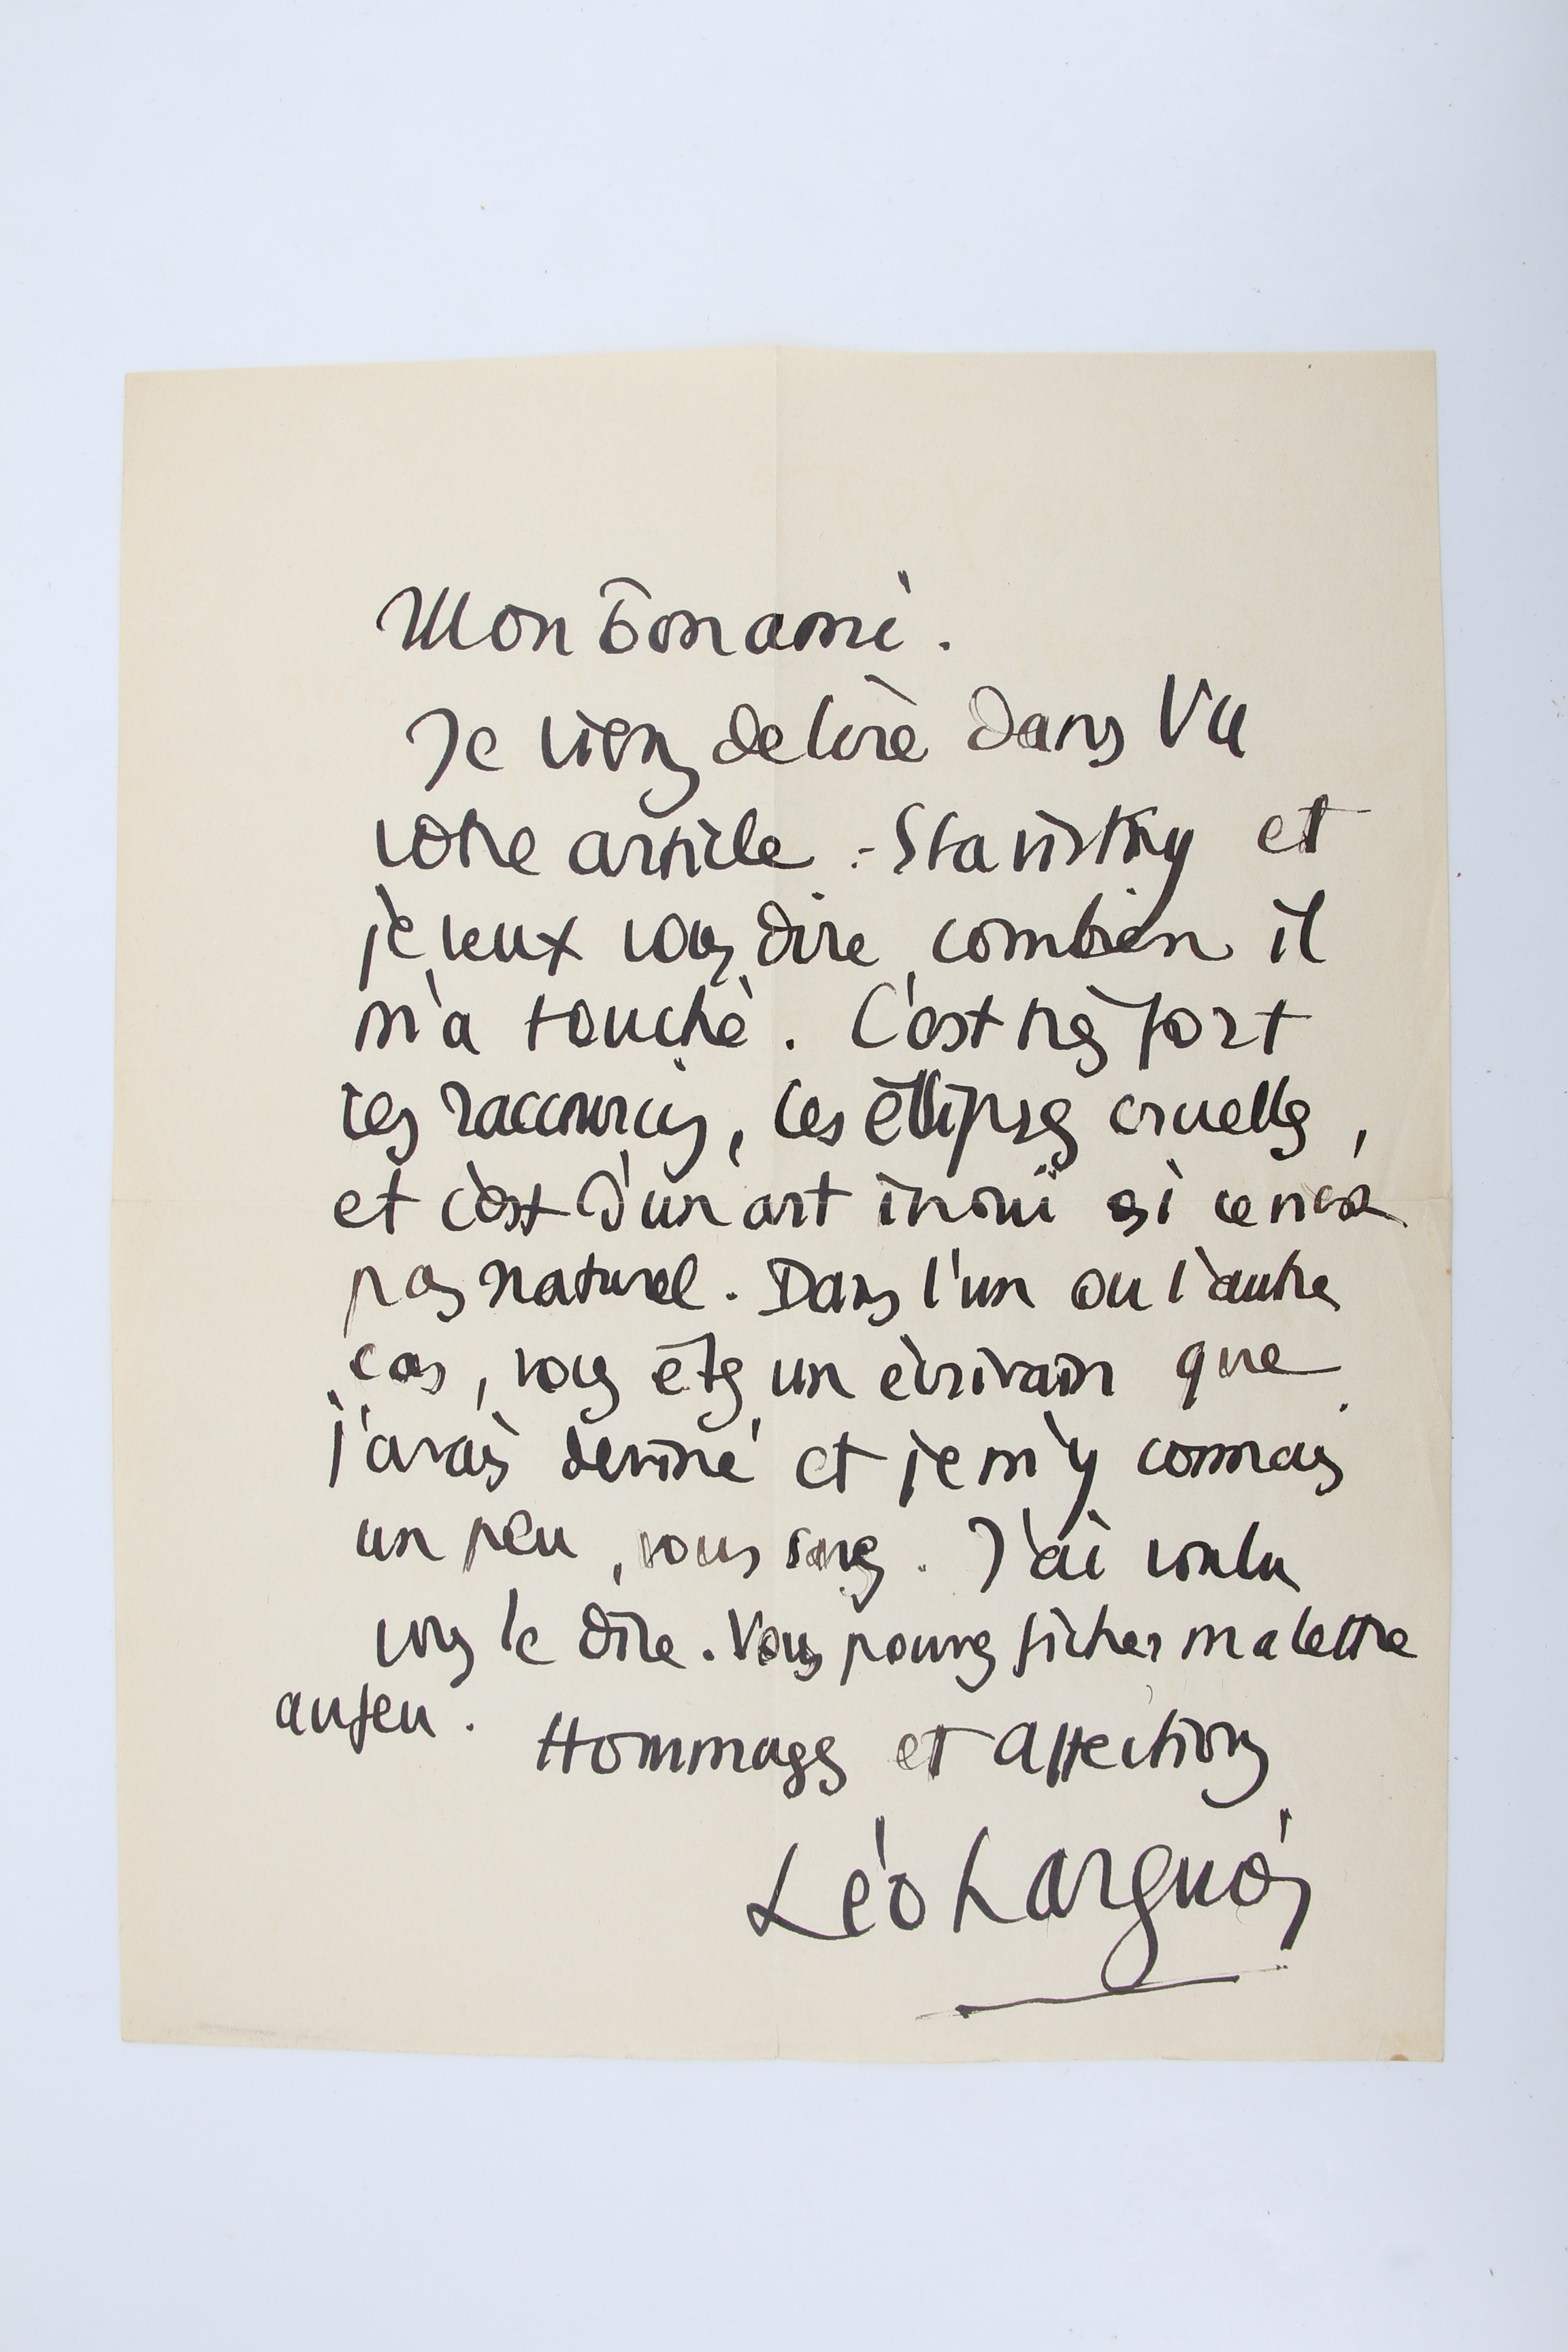 Mon bon ami.
Je viens de lire dans Vu
votre article :- Stavisky et
je veux vous dire combien il
m'a touché. C'est très fort
ces raccourcis, ces ellipses cruelles,
et c'est d'un art inouï si ce n'est
pas naturel. Dans l'un ou l'autre
cas, vous êtes un écrivain que
j'avais deviné et je m'y connais
un peu, vous savez. J'ai voulu
vous le dire. Vous pouvez ficher ma lettre
au feu.
Hommages et affections
Léo Larguier